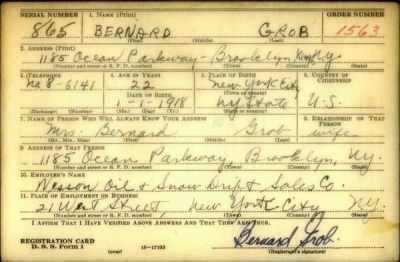 SERIAL NUMBER 1. NAME (Print) ORDER NUMBER
865 BERNARD GROB 1563
(First) (Middle) (Last)
2. ADDRESS (Print)
1185 Ocean Parkway - Brooklyn Kings NY
(Number and street or R. F. D. number) (Town) (County) (State)
3. TELEPHONE 4. AGE IN YEARS 5. PLACE OF BIRTH 6. COUNTRY OF CITIZENSHIP
22 New York City
Na 8-6141 DATE OF BIRTH (Town or county)
1-1-1918 NY State U.S.
(Exchange) (Number) (Mo.) (Day) (Yr.) (State or country)
7. NAME OF PERSON WHO WILL ALWAYS KNOW YOUR ADDRESS 8. RELATIONSHIP OF THAT PERSON
Mrs. Bernard Grob wife
(Mr., Mrs., Miss) (First) (Middle) (Last)
9. ADDRESS OF THAT PERSON
1185 Ocean Parkway, Brooklyn, NY.
(Number and street or R. F. D. number) (Town) (County) (State)
10. EMPLOYER'S NAME
Wesson Oil & Snow Drift Sales Co.
11. PLACE OF EMPLOYMENT OR BUSINESS
21 West Street, New York City NY.
(Number and street or R. F. D. number) (Town) (County) (State)
I AFFIRM THAT I HAVE VERIFIED ABOVE ANSWERS AND THAT THEY ARE TRUE.
REGISTRATION CARD
D. S. S. Form 1 (over) 16-17105 Bernard Grob.
(Registrant's signature)